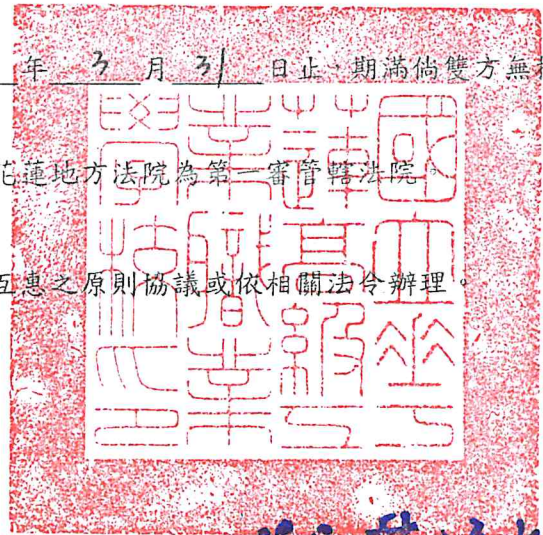 年 3 月 31 日止，期滿倘雙方無
花蓮地方法院為第一審管轄法院。
互惠之原則協議或依相關法令辦理。
國立花蓮高級工業職業學校之印